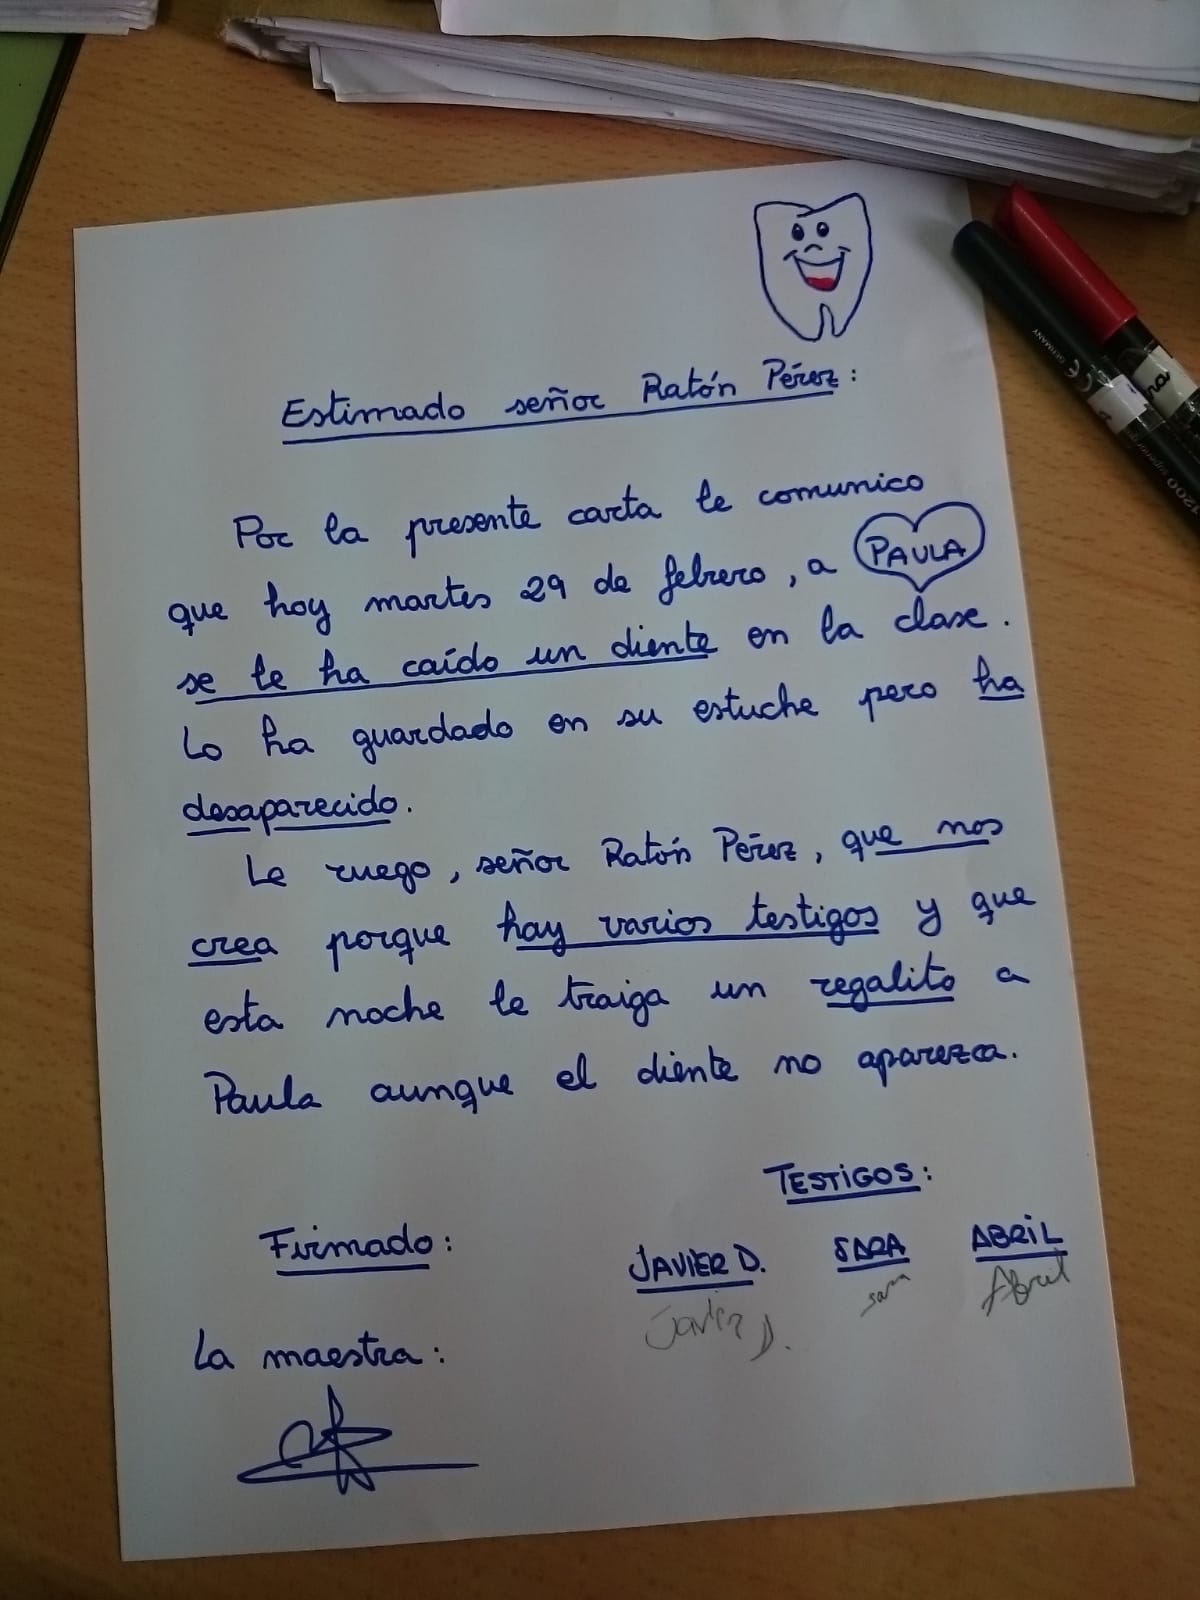 Estimado señor Ratón Pérez:
Por la presente carta le comunico
que hoy martes 29 de febrero, a PAULA
se le ha caído un diente en la clase.
Lo ha guardado en su estuche pero ha
desaparecido.
Le ruego, señor Ratón Pérez, que nos
crea porque hay varios testigos y que
esta noche le traiga un regalito a
Paula aunque el diente no aparezca.
TESTIGOS:
Firmado:
JAVIER D. SARA ABRIL
Javier D. sara Abril
La maestra:
GERMANY
CE